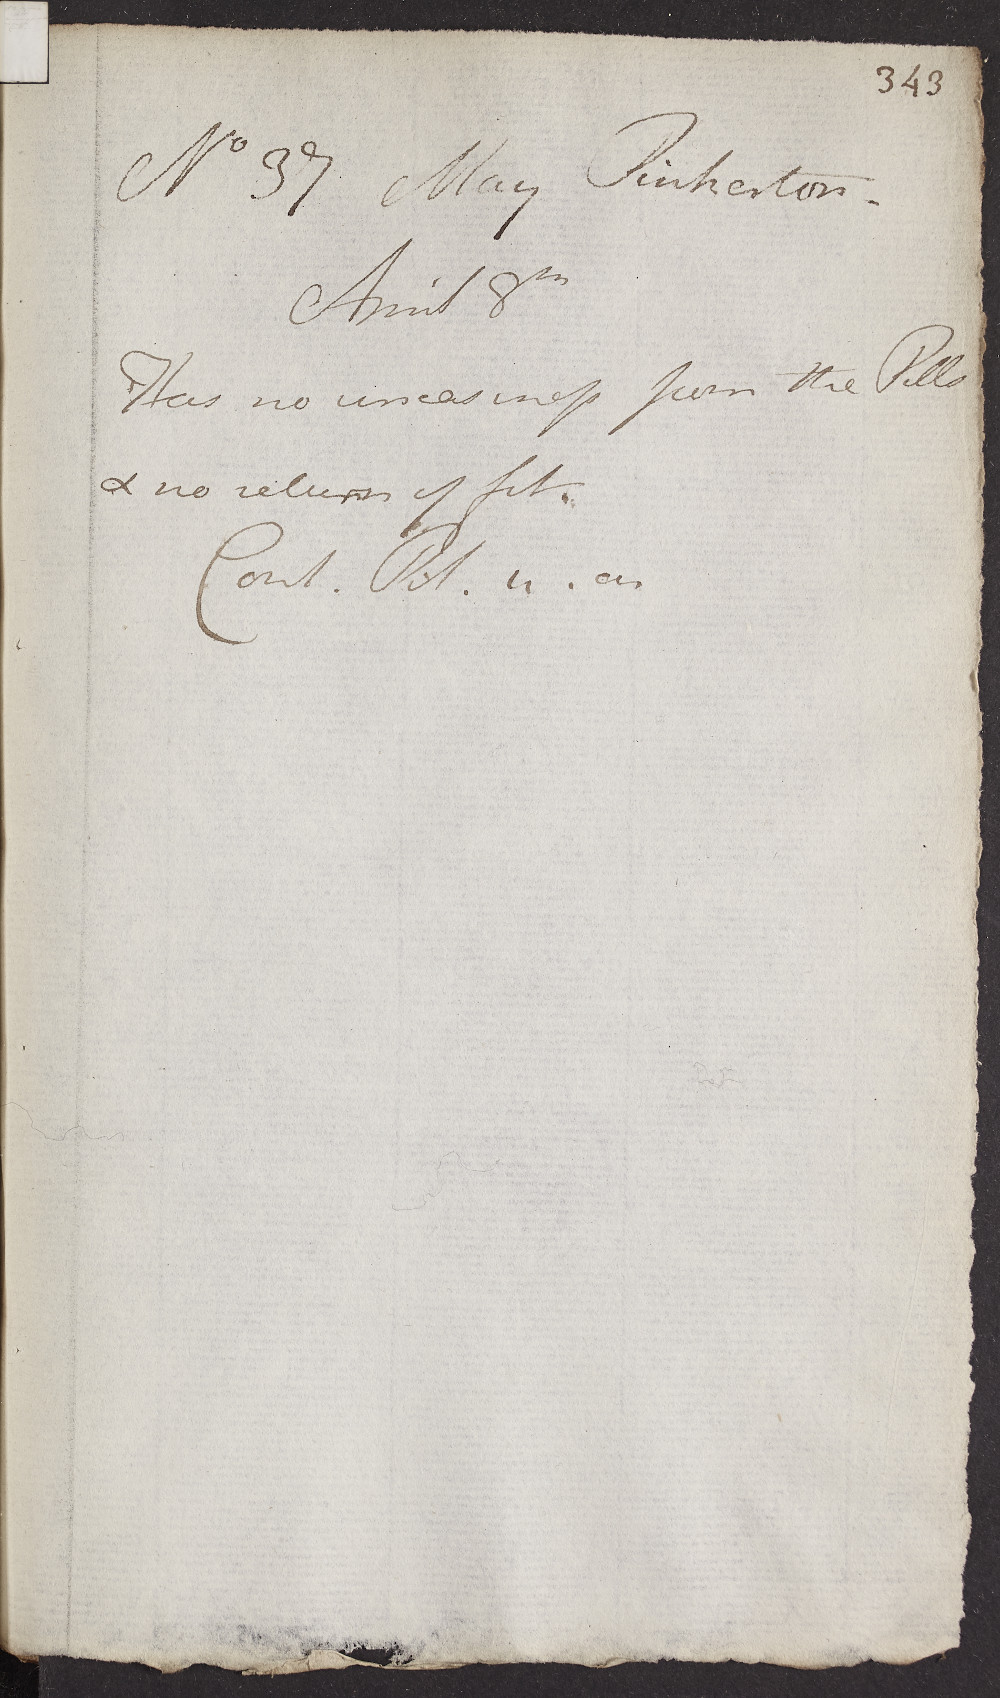 343
No 37 May Pinkerton.
April 8th
Has no uneasiness from the Pills
& no return of fit.
Cont. Pil. u. an